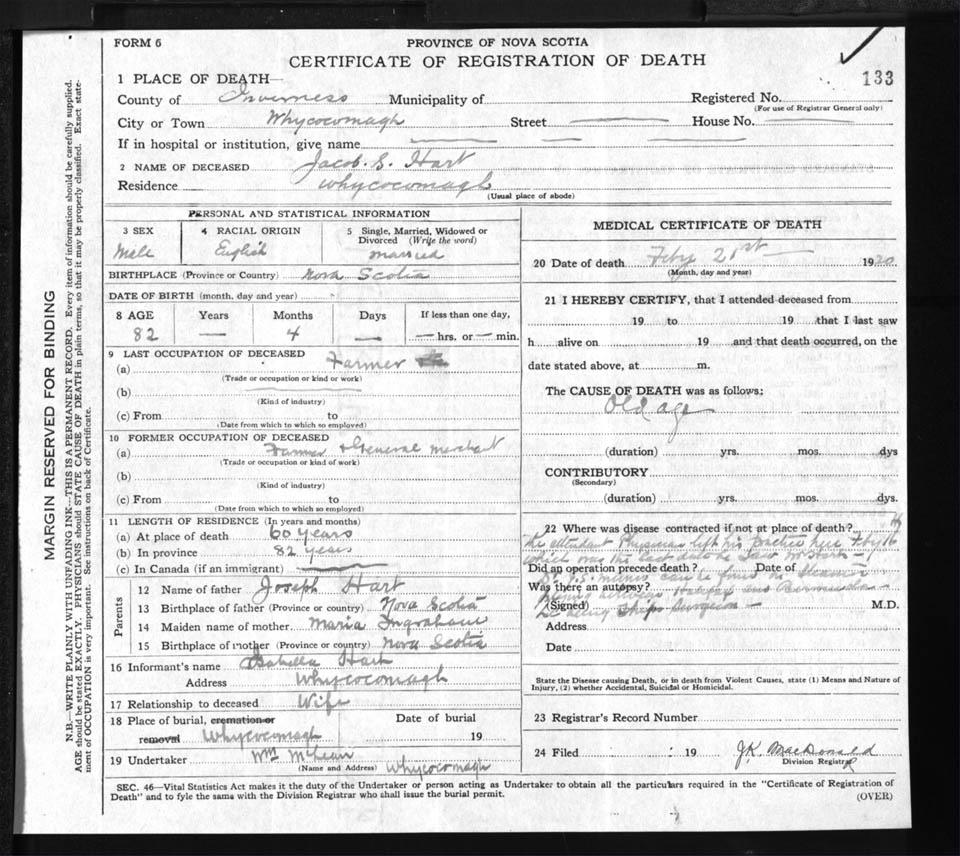 FORM 6
PROVINCE OF NOVA SCOTIA
CERTIFICATE OF REGISTRATION OF DEATH
133
1 PLACE OF DEATH—
County of Inverness Municipality of Registered No.
(For use of Registrar General only)
City or Town Whycocomagh Street House No.
If in hospital or institution, give name
2 NAME OF DECEASED Jacob. S. Hart
Residence Whycocomagh
(Usual place of abode)
PERSONAL AND STATISTICAL INFORMATION
3 SEX 4 RACIAL ORIGIN 5 Single, Married, Widowed or
Divorced (Write the word)
Male English married
BIRTHPLACE (Province or Country) Nova Scotia
DATE OF BIRTH (month, day and year)
8 AGE Years Months Days If less than one day,
82 — 4 — — hrs. or — min.
9 LAST OCCUPATION OF DECEASED
(a) Farmer
(Trade or occupation or kind or work)
(b)
(Kind of industry)
(c) From to
(Date from which to which so employed)
10 FORMER OCCUPATION OF DECEASED
(a) Farmer & General merchant
(Trade or occupation or kind of work)
(b)
(Kind of industry)
(c) From to
(Date from which to which so employed)
11 LENGTH OF RESIDENCE (In years and months)
(a) At place of death 60 years
(b) In province 82 years
(c) In Canada (if an immigrant)
Parents
12 Name of father Joseph Hart
13 Birthplace of father (Province or country) Nova Scotia
14 Maiden name of mother. Maria Ingraham
15 Birthplace of mother (Province or country) Nova Scotia
16 Informant's name Isabella Hart
Address Whycocomagh
17 Relationship to deceased Wife
18 Place of burial, cremation or Date of burial
removal Whycocomagh 19
19 Undertaker Wm McLean
(Name and Address) Whycocomagh
MEDICAL CERTIFICATE OF DEATH
20 Date of death Feby 21st — 1920
(Month, day and year)
21 I HEREBY CERTIFY, that I attended deceased from
19 to 19 that I last saw
h alive on 19 and that death occurred, on the
date stated above, at m.
The CAUSE OF DEATH was as follows:
Old age
(duration) yrs. mos. dys
CONTRIBUTORY
(Secondary)
(duration) yrs. mos. dys.
22 Where was disease contracted if not at place of death?
The attendant Physician left his practice here Feby 16
which was the last date he saw Mr Hart —
Did an operation precede death? Date of
Dr. can be found on Steamer
Was there an autopsy?
plying between Halifax and Bermuda —
(Signed) M.D.
he being Ships Surgeon —
Address
Date
State the Disease causing Death, or in death from Violent Causes, state (1) Means and Nature of
Injury, (2) whether Accidental, Suicidal or Homicidal.
23 Registrar's Record Number
24 Filed : 19 J.K. MacDonald
Division Registrar
SEC. 46—Vital Statistics Act makes it the duty of the Undertaker or person acting as Undertaker to obtain all the particulars required in the "Certificate of Registration of
Death" and to fyle the same with the Division Registrar who shall issue the burial permit.
(OVER)
MARGIN RESERVED FOR BINDING
N.B.—WRITE PLAINLY WITH UNFADING INK—THIS IS A PERMANENT RECORD. Every item of information should be carefully supplied.
AGE should be stated EXACTLY. PHYSICIANS should STATE CAUSE OF DEATH in plain terms, so that it may be properly classified. Exact state-
ment of OCCUPATION is very important. See instructions on back of Certificate.